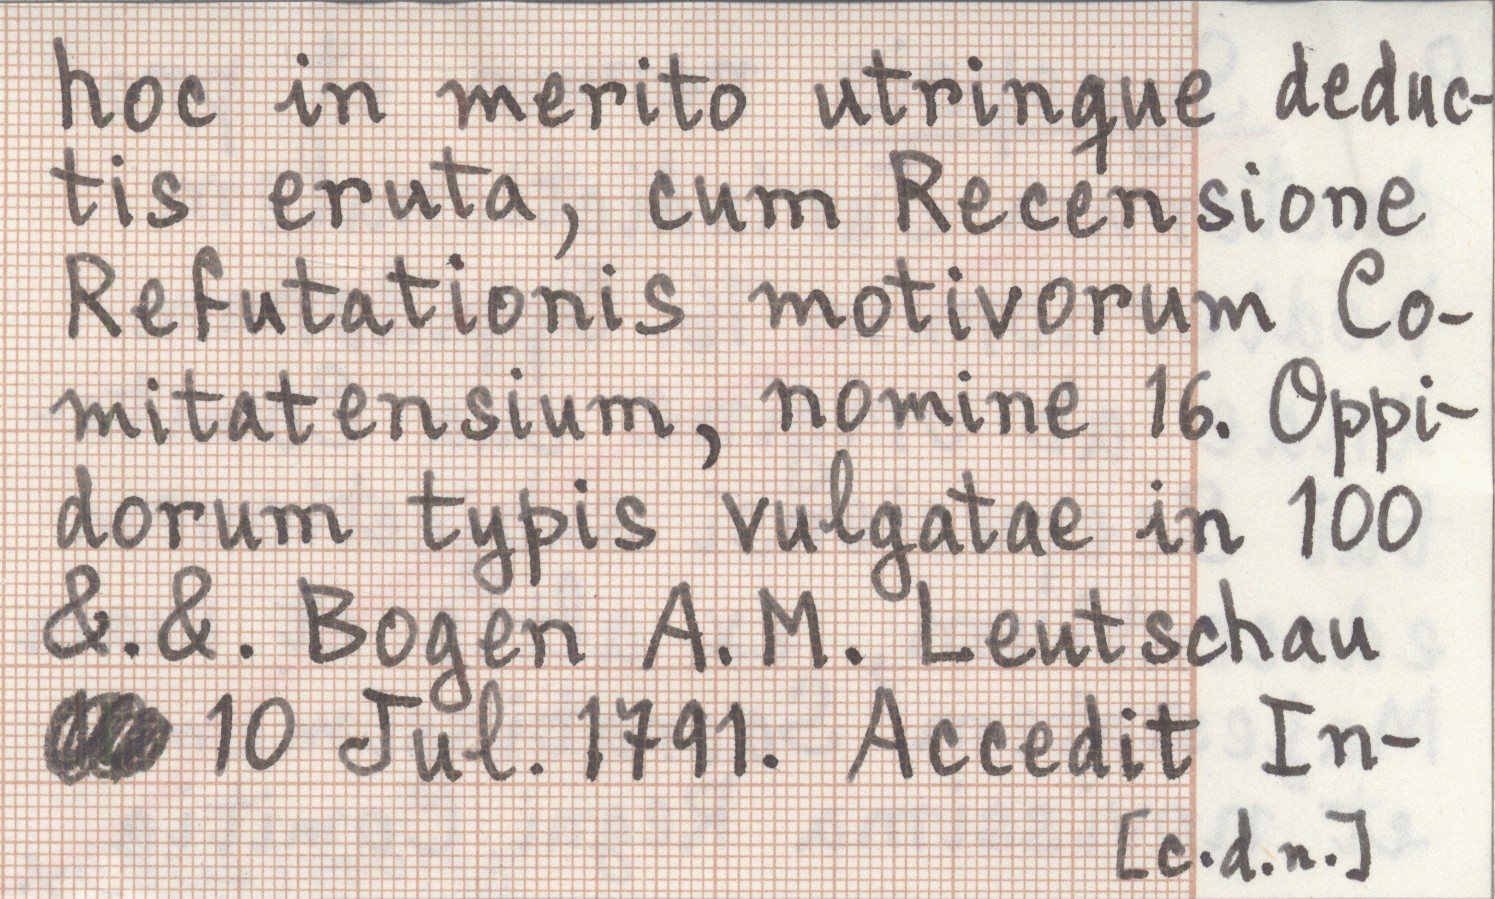 hoc in merito utrinque deduc-
tis eruta, cum Recensione
Refutationis motivorum Co-
mitatensium, nomine 16. Oppi-
dorum typis vulgatae in 100
&.&. Bogen A.M. Leutschau
10 Jul. 1791. Accedit In-
[c.d.n.]